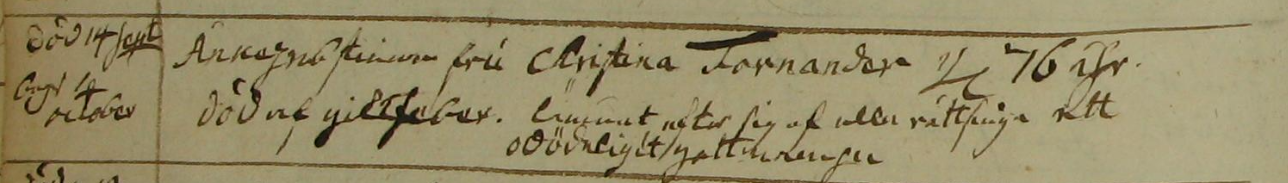 död 14 Sept
begr 4
october
Änkeprostinnan fru Christina Fornander 76 åhr.
död af giktfeber. lämnat efter sig af alla rättsinga ett
odödeligit